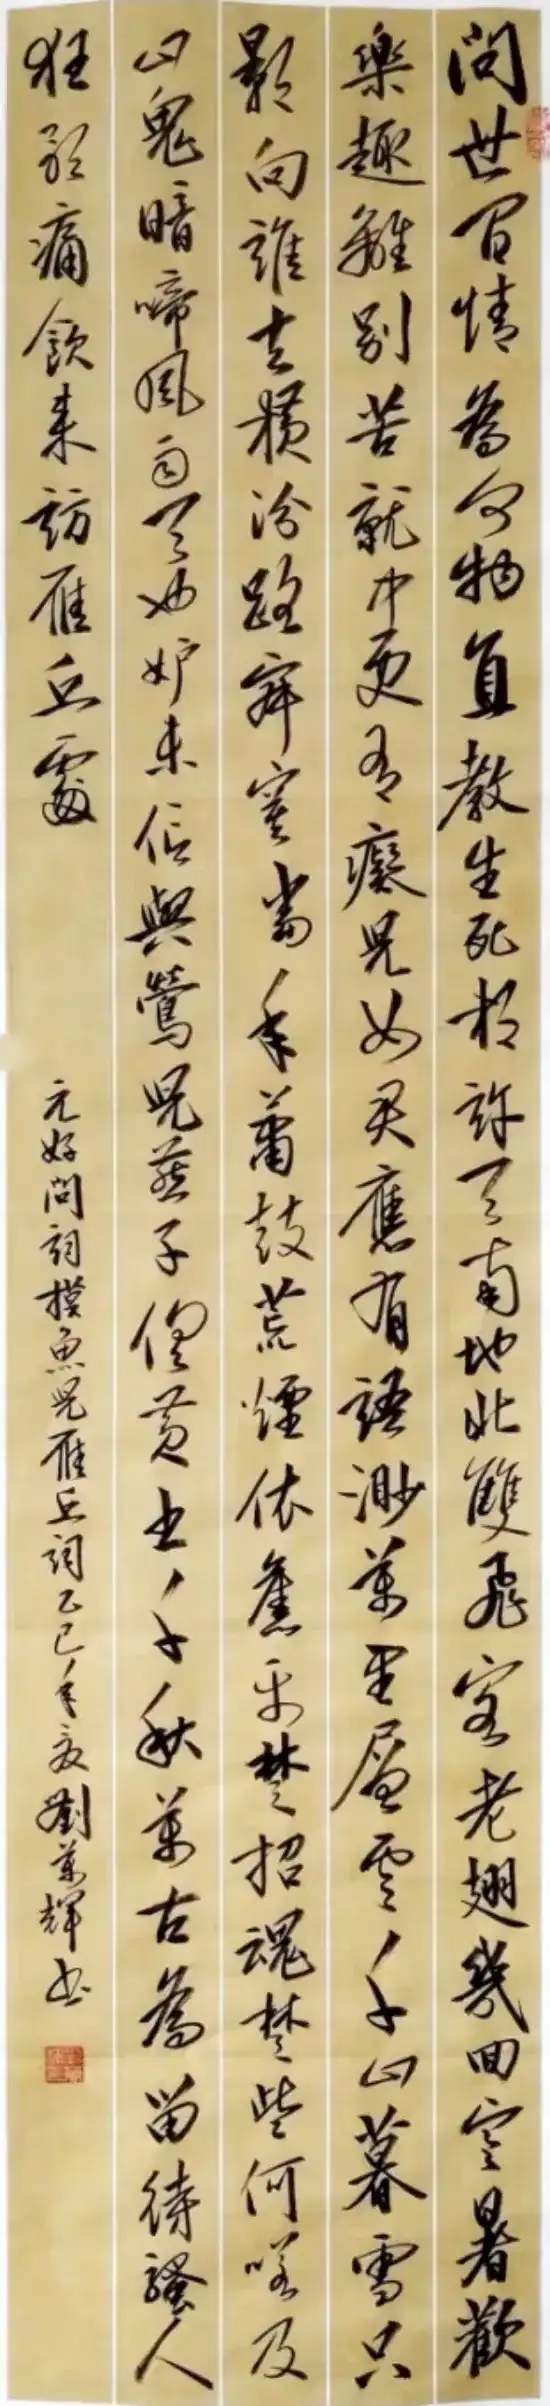 問世間情為何物直教生死相許天南地北雙飛客老翅幾回寒暑歡
樂趣離別苦就中更有癡兒女君應有語渺萬里層雲千山暮雪只
影向誰去橫汾路寂寞當年蕭鼓荒煙依舊平楚招魂楚些何嗟及
山鬼暗啼風雨天也妒未信與鶯兒燕子俱黃土千秋萬古為留待騷人
狂歌痛飲來訪雁丘處
元好問詞摸魚兒雁丘詞乙巳年夏劉萬輝書